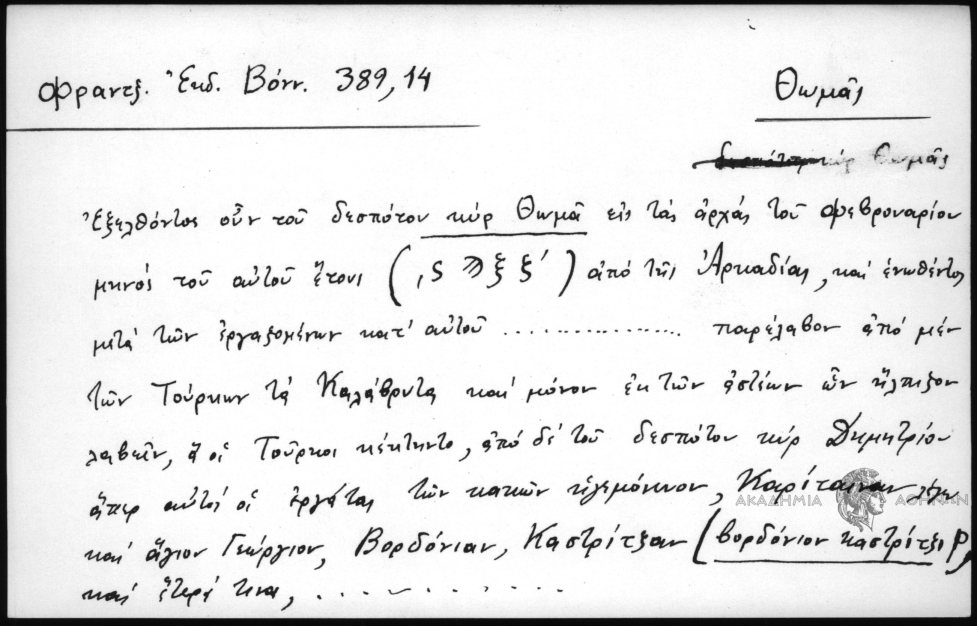 Φραντζ. Ἐκδ. Βόνν. 389,14
Θωμᾶς
Θωμᾶς
Ἐξελθόντος οὖν τοῦ δεσπότου κύρ Θωμᾶ εἰς τὰς ἀρχάς τοῦ Φεβρουαρίου
μηνός τοῦ αὐτοῦ ἔτους (͵ϛϡξζʹ) ἀπό τῆς Ἀρκαδίας, καί ἑνωθέντος
μετά τῶν ἐργαζομένων κατ' αὐτοῦ .................. παρέλαβον ἀπό μέν
τῶν Τούρκων τά Καλάβρυτα καί μόνον ἐκ τῶν ἀστέων ὧν ἤλπιζον
λαβεῖν, ἅ οἱ Τοῦρκοι κέκτηντο, ἀπό δέ τοῦ δεσπότου κύρ Δημητρίου
ἅπερ αὐτοί οἱ ἐργάται τῶν κακῶν ἡγεμόνευον, Καρίταιναν τήν
ΑΚΑΔΗΜΙΑ ΑΘΗΝΩΝ
καί ἅγιον Γεώργιον, Βορδόνιαν, Καστρίτζαν (βορδόνιον καστρίτζι Ρ)
καί ἕτερά τινα, . . . . . . . . .